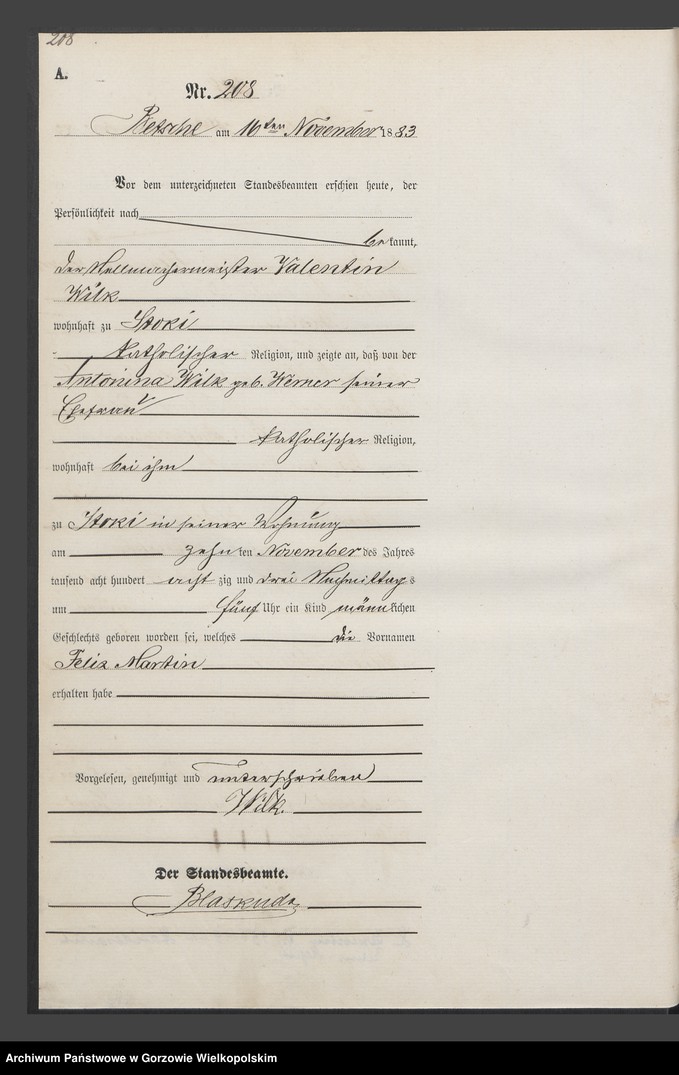 208
A.
Nr. 208
Betsche am 16ten November 1883
Vor dem unterzeichneten Standesbeamten erschien heute, der
Persönlichkeit nach
bekannt,
der Stellmachermeister Valentin
Wilk
wohnhaft zu Stoki
katholischer Religion, und zeigte an, daß von der
Antonina Wilk geb. Werner seiner
Ehefrau
katholischer Religion,
wohnhaft bei ihm
zu Stoki in seiner Wohnung
am zehnten November des Jahres
tausend acht hundert achtzig und drei Nachmittags
um fünf Uhr ein Kind männlichen
Geschlechts geboren worden sei, welches die Vornamen
Felix Martin
erhalten habe
Vorgelesen, genehmigt und unterschrieben
Wilk.
Der Standesbeamte.
Blaskuda
Archiwum Państwowe w Gorzowie Wielkopolskim